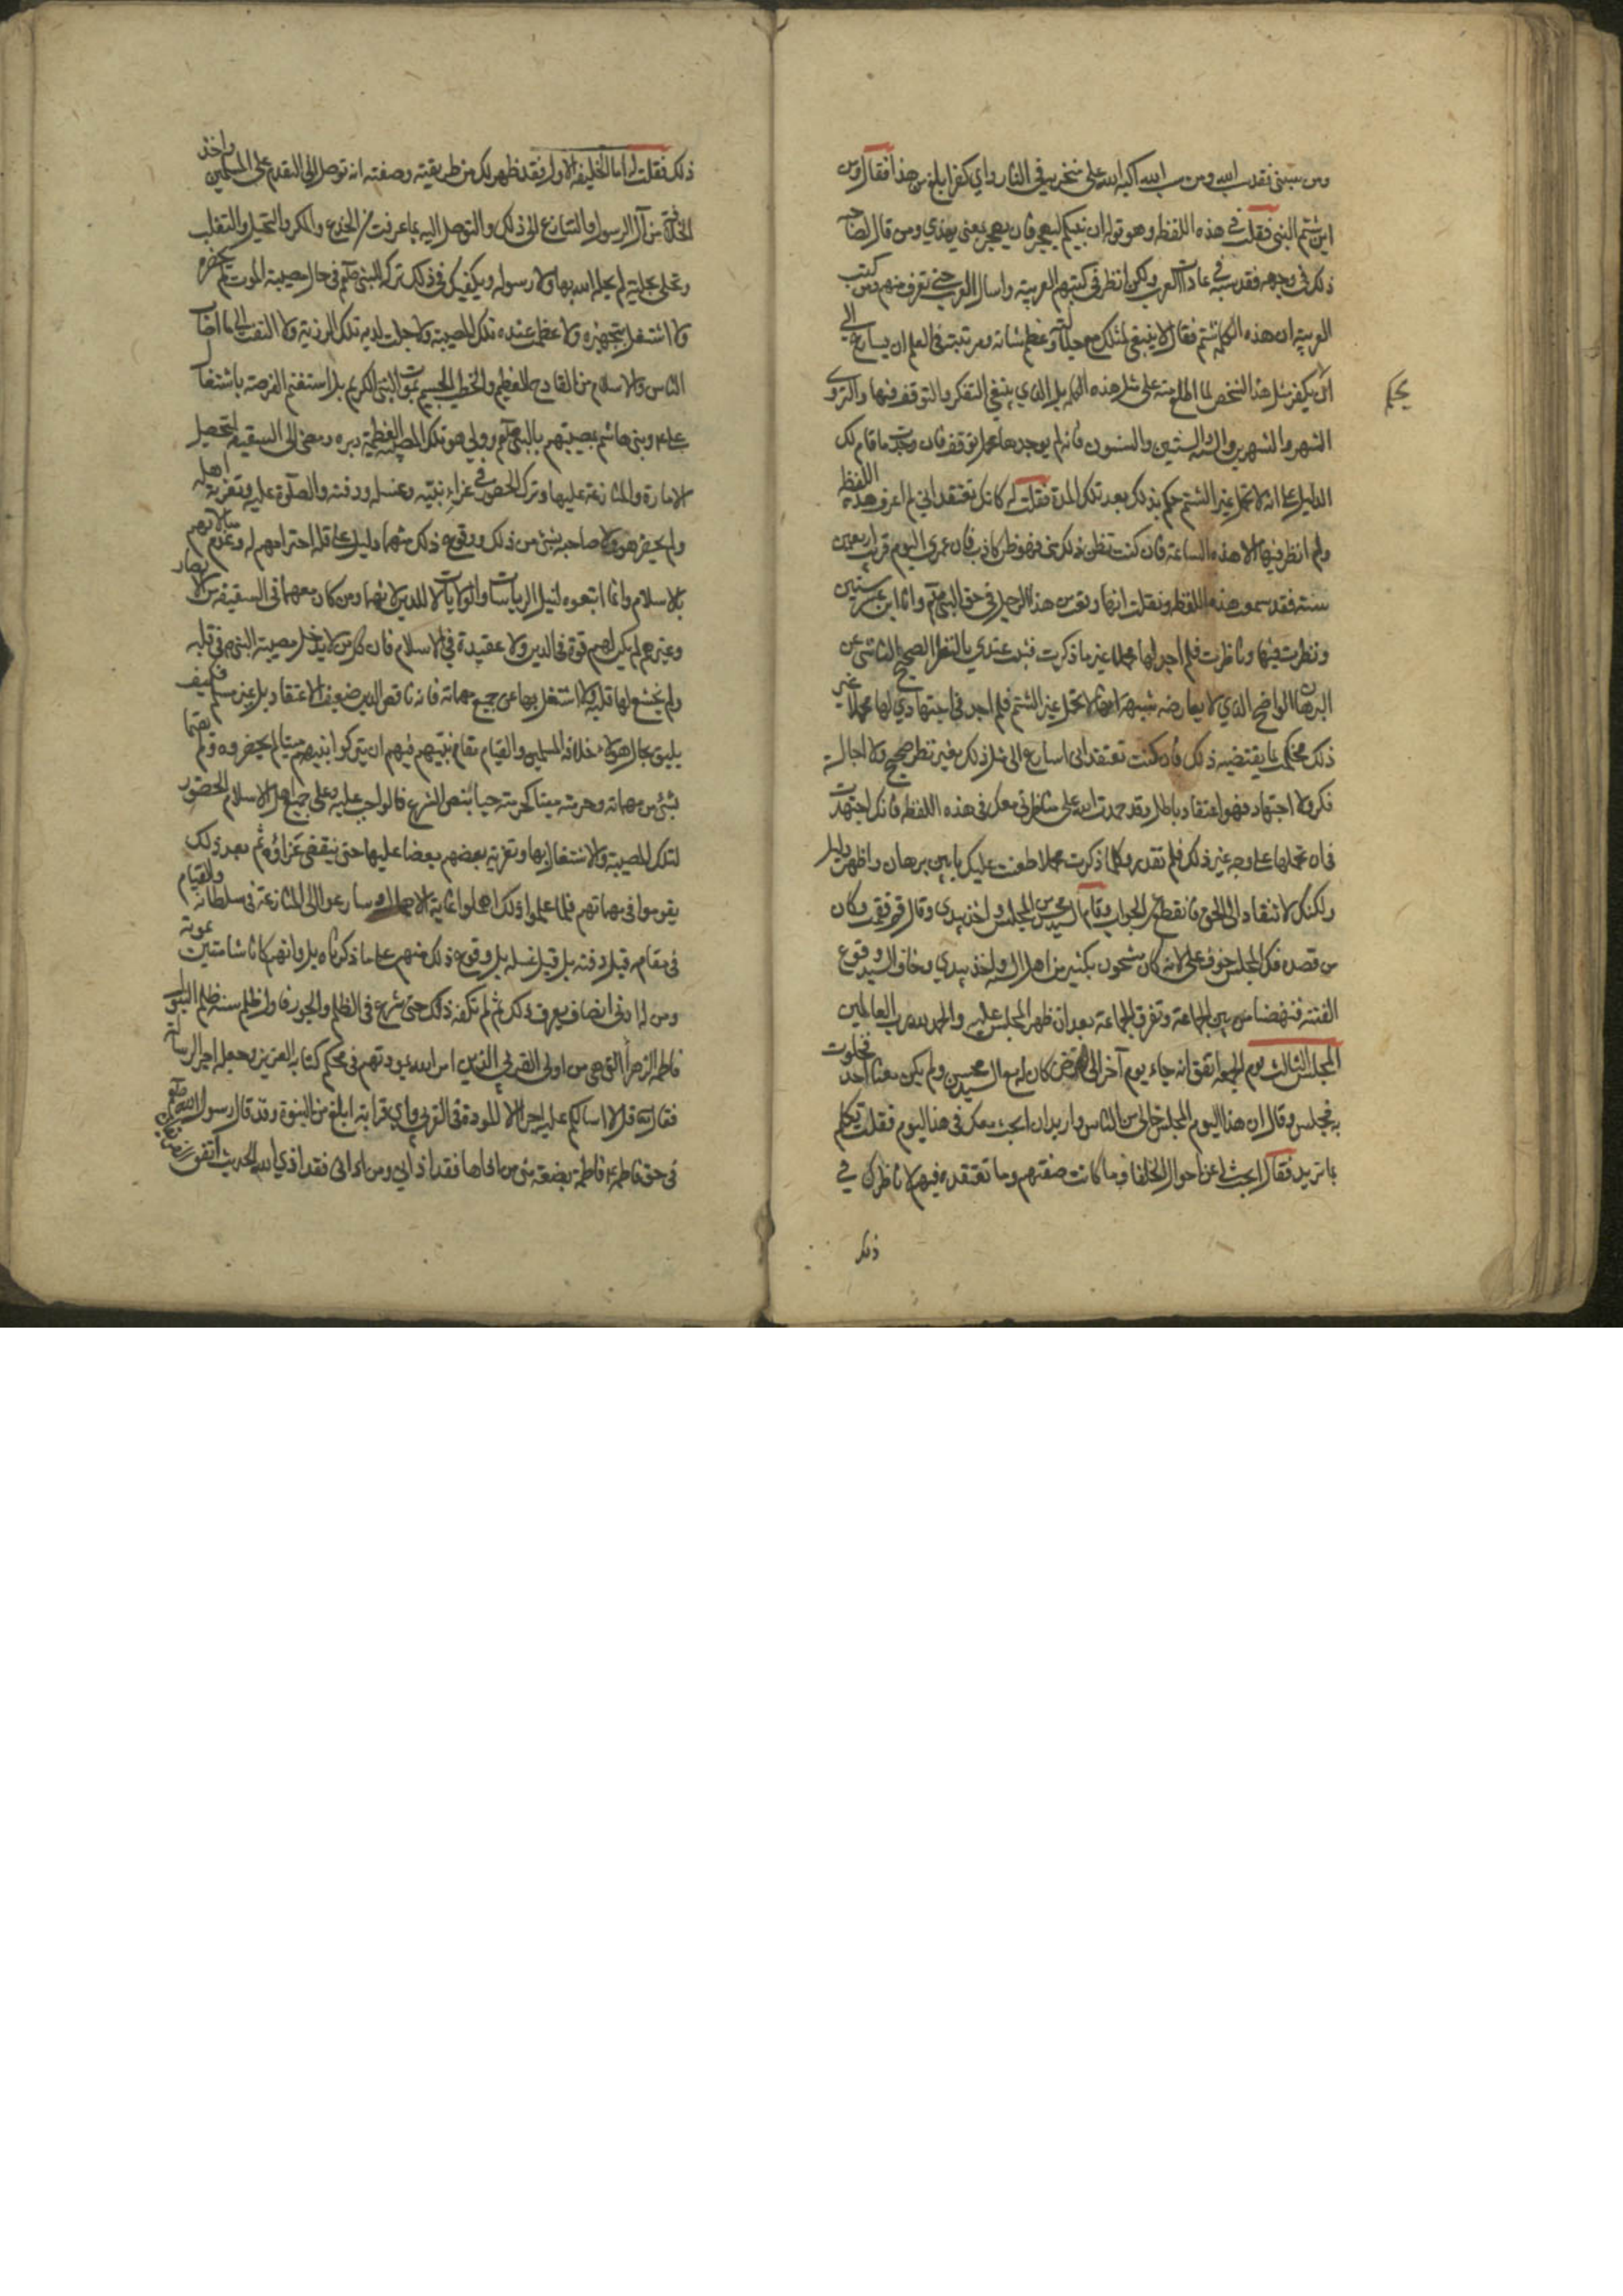 ومن سبني فقد سب الله ومن سب الله اكبه الله على منخريه في النار واي كفر ابلغ من هذا فقال ومن
اين شتم النبي فقلت في هذه اللفظه وهو قوله ان نبيكم ليهجر فان يهجر بمعنى يهذي ومن قال لصاحبه
ذلك في وجهه فقد سبه في عادات العرب ولكن انظر في كتبهم العربيه واسال العرب حتى تعرف منهم ومن كتب
العربيه ان هذه الكلمة شتم فقال لا ينبغي لمثلك مع جلالته وعظم شانه ومرتبته في العلم ان يسارع الى
ان يكفر مثل هذا الشخص لما اطلع منه على مثل هذه الكلمه بل الذي ينبغي التفكر والتوقف فيها والتروى
يحكم
الشهر والشهرين والسنه والسنتين والسنون فانه لم يوجد لها محمل توقف فان وجدت ما قام لك
الدليل على انه لا تحتمل غير الشتم حكم بذلك بعد تلك المدة فقلت له كانك تعتقد اني لم اعرف هذه اللفظه
ولم انظر فيها الا هذه الساعة فان كنت تظن ذلك مني فهو ظن كاذب فان عمري اليوم قريب اربعين
سنة فقد سمعت هذه اللفظه ونقلت انها وقعت من هذا الرجل في حق النبي صلعم وانا ابن عشر سنين
ونظرت فيها وناظرت فلم اجد لها محملا غير ما ذكرت فثبت عندي بالنظر الصحيح الناشئ عن
البرهان الواضح الذي لا يعارضه شبهة انها لا تحتمل غير الشتم فلم اجد في اجتهادي لها محملا غير
ذلك فحكمت بما يقتضيه ذلك فان كنت تعتقد اني اسارع الى مثل ذلك بغير نظر صحيح ولا اجالة
فكر ولا اجتهاد فهو اعتقاد باطل وقد حمدت الله على مناظرتي معك في هذه اللفظه فانك اجتهدت
في ان تحملها على وجه غير ذلك فلم تقدر وكلما ذكرت محملا طعنت عليك بابين برهان واظهر دليل
ولكنك لا تنقاد الى الحق فانقطع الجواب وقام السيد محسن من المجلس واخذ بيدي وقال قم فقمت وكان
من قصده فك المجلس خوف علي لانه كان مشحون بكثير من اهل ال واخذ بيدي وخاف السيد وقوع
الفتنه فنهضنا من بين الجماعة وتفرق الجماعة بعد ان ظهر المجلس عليه والحمد لله رب العالمين
المجلس الثالث يوم الجمعه اتفق انه جاء يوم آخر الى كان لي مع السيد محسن ولم يكن معنا احد فخلوت
به فجلس وقال ان هذا اليوم المجلس خالي من الناس واريد ان ابحث معك في هذا اليوم فقلت تكلم
بما تريد فقال ابحث لي عن احوال الخلفا وما كانت صفتهم وما تعتقده فيهم لاناظرك في
ذلك
ذلك فقلت له اما الخليفه الاول فقد ظهر لك من طريقيته وصفته انه توصل الى التقدم على المسلمين واخذ
الخلافة من آل الرسول والتسارع الى ذلك والتوصل اليه بما عرفت من الخدع والمكر والتحيل والتقلب
وتحلى بحلية لم يحله الله بها ولا رسوله ويكفيك في ذلك تركه النبي صلعم في حال مصيبة الموت فلم يحضره
ولا اشتغل بتجهيزه ولا عظمت عنده تلك المصيبة ولا جلت لديه تلك الرزية ولا التفت الى ما اصاب
الناس والاسلام من الفادح العظيم والخطب الجسيم بموت النبي الكريم بل استغنم الفرصة باشتغال
علي ع وبني هاشم بمصيبتهم بالنبي صلعم وولى هو تلك المصيبة العظيمة دبره ومضى الى السقيفه لتحصيل
الامارة والمنازعة عليها وترك الحضور في عزاء نبيه وغسله ودفنه والصلوة عليه وتعزية اهله
ولم يحضر هو ولا صاحبه شئ من ذلك ووقوع ذلك منهما دليل على قلة احترامهم له وعدم مبالاتهم
بالاسلام وانما ابتغوه لنيل الرياسات والولايات لا للدين لانهما ومن كان معهما في السقيفه من الانصار
وغيرهم لم يكن لهم قوة في الدين ولا عقيدة في الاسلام فان كل من لا يدخل مصيبة النبي في قلبه
ولم يخشع لها قلبه ولا اشتغل بها عن جميع مهماته فانه ناقص الدين ضعيف الاعتقاد بل غير مسلم فكيف
يليق بحال هؤلاء خلافة المسلمين والقيام مقام نبيهم فيهم ان يتركوا نبيهم ميتا لم يحضروه ولم يهتما
بشئ من مهماته وحرمته ميتا كحرمته حيا بنص الشرع فالواجب عليه وعلى جميع اهل الاسلام الحضور
لتلك المصيبة والاشتغال بها وتعزية بعضهم بعضا عليها حتى ينقضي عزاؤه ثم بعد ذلك
يقوموا في مهماتهم فلما عملوا ذلك اهملوا غاية الاهمال وسارعوا الى المنازعة في سلطانه والقيام
في مقامه قبل دفنه بل قبل غسله بل وقوع ذلك منهم على ما ذكرناه بل وانهم كانا شامتين بموته
ومن له ادنى انصاف يعرف ذلك ثم لم تكفه ذلك حتى شرع في الظلم والجور فاول ظلم سنه ظلم البتول
فاطمة الزهرا التي هي من اولى القربى الذين امر الله بمودتهم في محكم كتابه العزيز وجعله اجر الرسالة
فقال تع قل لا اسالكم عليه اجرا الا المودة في القربى واي قرابة ابلغ من البنوة وقد قال رسول الله صلعم
في حق فاطمة ع فاطمة بضعة مني من اذاها فقد اذاني ومن اذاني فقد اذى الله الحديث اتفق